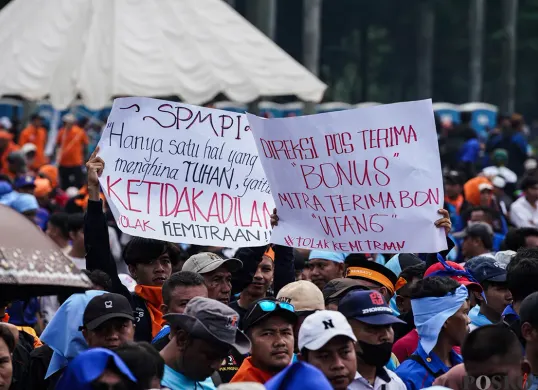 ~ SPMPI ~
"Hanya satu hal yang
menghina TUHAN, yaitu
KETIDAKADILAN
TOLAK KEMITRAAN !!
DIREKSI POS TERIMA
"BONUS"
MITRA TERIMA BON
"UTANG"
#TOLAK KEMITRAAN
NY
POSKO